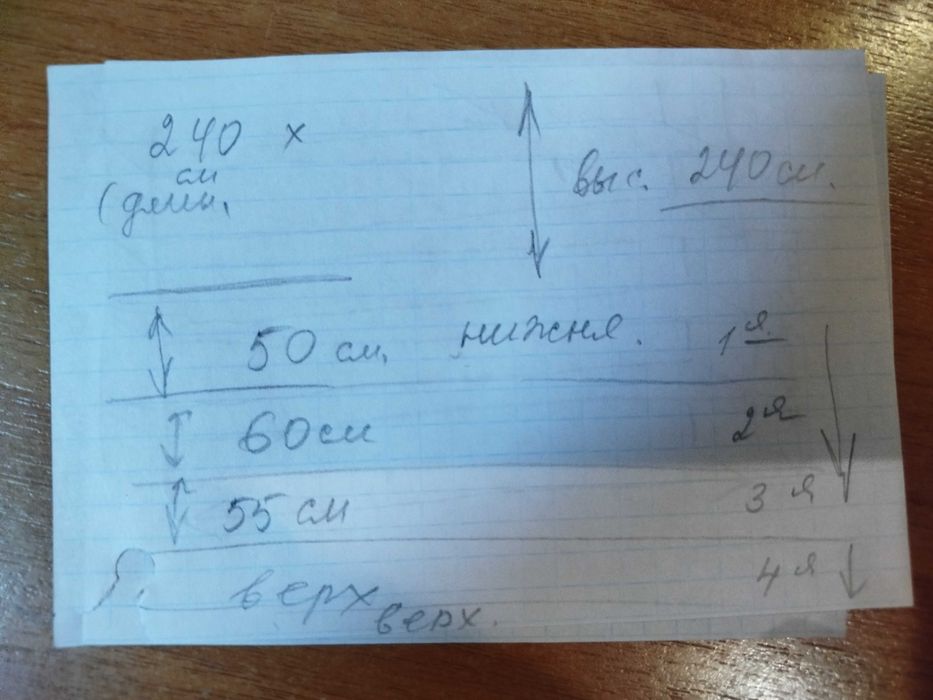 240 х
см
(длин.
выс. 240 см.
50 см. нижня. 1я
60 см 2я
55 см 3я
верх 4я
верх.